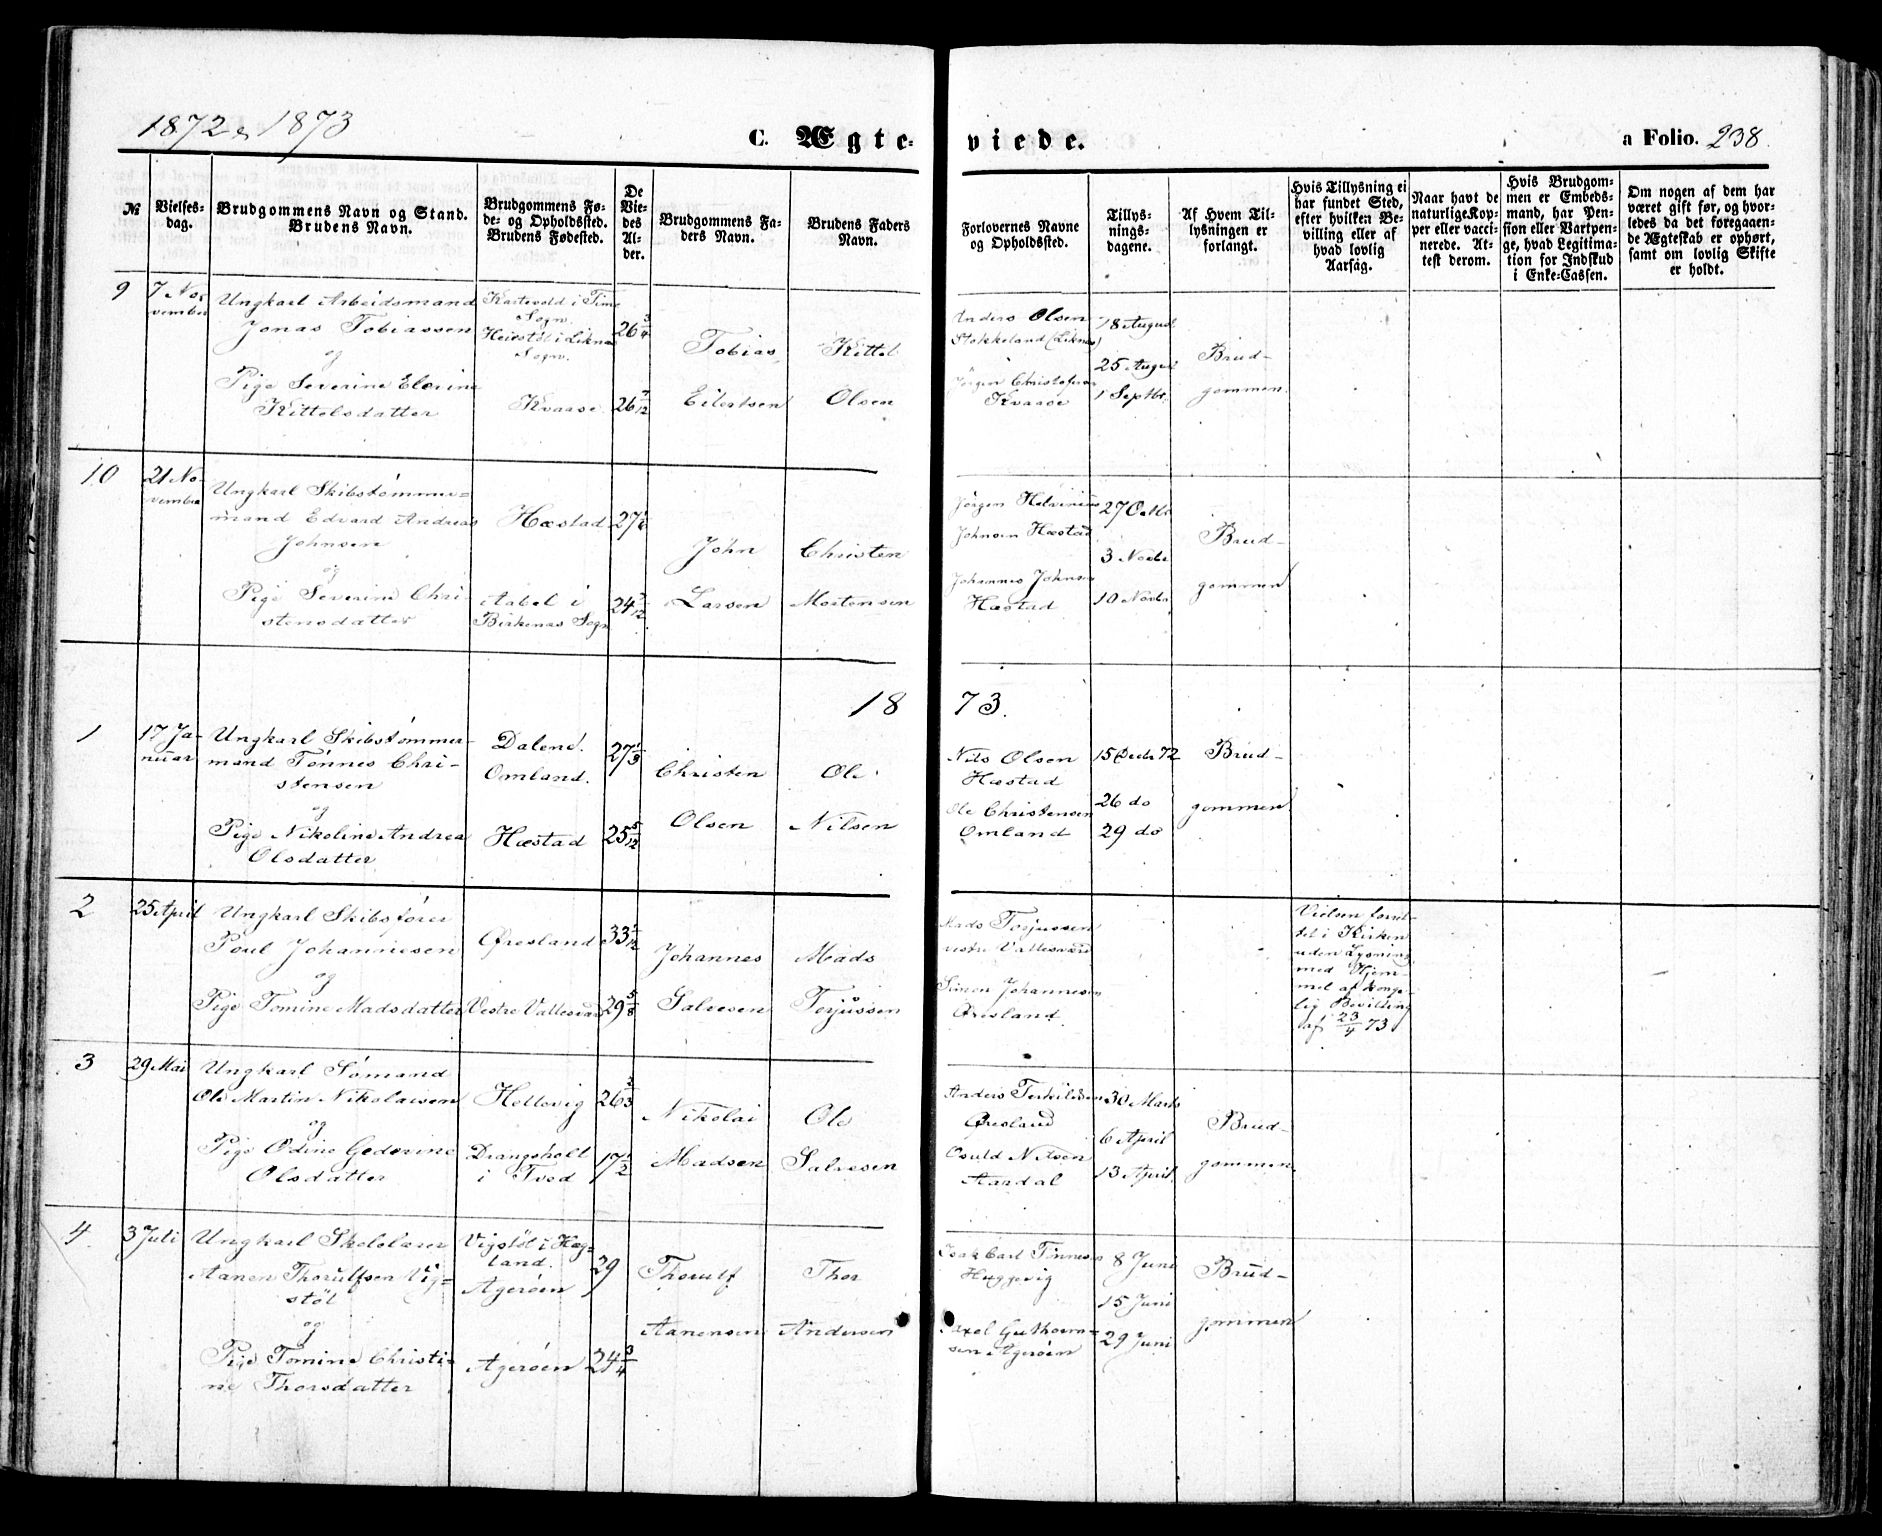 1872 & 1873
C. Ægte-
viede.
a Folio. 238.
№
Vielses-
dag.
Brudgommens Navn og Stand.
Brudens Navn.
Brudgommens Fø-
de- og Opholdssted.
Brudens Fødested.
De
Vie-
des
Al-
der.
Brudgommens Fa-
ders Navn.
Brudens Faders
Navn.
Forlovernes Navne
og Opholdssted.
Tillys-
nings-
dagene.
Af Hvem Til-
lysningen er
forlangt.
Hvis Tillysning ei
har fundet Sted,
efter hvilken Be-
villing eller af
hvad lovlig
Aarsag.
Naar havt de
naturlige Kop-
per eller vacci-
nerede. At-
test derom.
Hvis Brudgom-
men er Embeds-
mand, har Pen-
sion eller Vartpen-
ge, hvad Legitima-
tion for Indskud
i Enke-Cassen.
Om nogen af dem har
været gift før, og hvor-
ledes da det foregaaen-
de Ægteskab er ophørt,
samt om lovlig Skifte
er holdt.
9
7 No-
vember
Ungkarl Arbeidsmand
Jonas Tobiassen
og
Pige Severine Elerine
Kittelsdatter
i Time
Sogn.
i Liknes
Sogn.
Kvaase
26 3/4
26 7/12
Tobias
Eilertsen
Kittel
Olsen
Anders Olsen
Stokkeland (Liknes)
Jørgen Christofersen
Kvaase
18 August
25 August
1 Septbr.
Brud-
gommen
10
21 No-
vember
Ungkarl Skibstømmer-
mand Edvard Andreas
Johnsen
og
Pige Severine Chri-
stensdatter
Hæstad
Aabel i
Birkenæs Sogn
27 1/6
24 7/12
John
Larsen
Christen
Mortensen
Jørgen
Johnsen Hæstad
Johannes Johnsen
Hæstad
27 Octbr
3 Novbr
10 Novbr
Brud-
gommen
1873.
1
17 Ja-
nuar
Ungkarl Skibstømmer-
mand Tønnes Chri-
stensen
og
Pige Nikoline Andrea
Olsdatter
Dalend.
Omland.
Hæstad
27 1/3
25 5/12
Christen
Olsen
Ole
Nilsen
Nils Olsen
Hæstad
Ole Christensen
Omland
15 Decbr 72
26 do
29 do
Brud-
gommen
2
25 April
Ungkarl Skibsfører
Poul Johannesen
og
Pige Tomine Madsdatter
Øresland
Vestre Vallesvær
33 1/12
29 5/8
Johannes
Salvesen
Mads
Terjussen
Mads Terjussen
vestre Vallesværd
Simon Johannesen
Øresland
Vielsen forret-
tet i Kirken
uden Lysning
med Hjem-
mel af konge-
lig Bevilling
af 23/4 73
3
29 Mai
Ungkarl Sømand
Ole Martin Nikolaisen
og
Pige Odine Gederine
Olsdatter
Hellevig
Drangsholt
i Tved
26 2/3
17 1/2
Nikolai
Madsen
Ole
Salvesen
Anders Terkildsen
Øresland
Osuld Nilsen
Aardal
30 Marts
6 April
13 April
Brud-
gommen
4.
3 Juli
Ungkarl Skolelærer
Aanen Thorulfsen Vig-
støl
og
Pige Tomine Christi-
ne Thorsdatter
Vigstøl i Hæg-
land.
Agerøen
Agerøen
29
24 3/4
Thorulf
Aanensen
Thor
Andersen
Isak Carl Tønnesen
Huggevig
Axel Guthorm-
sen Agerøen
8 Juni
15 Juni
29 Juni
Brud-
gommen